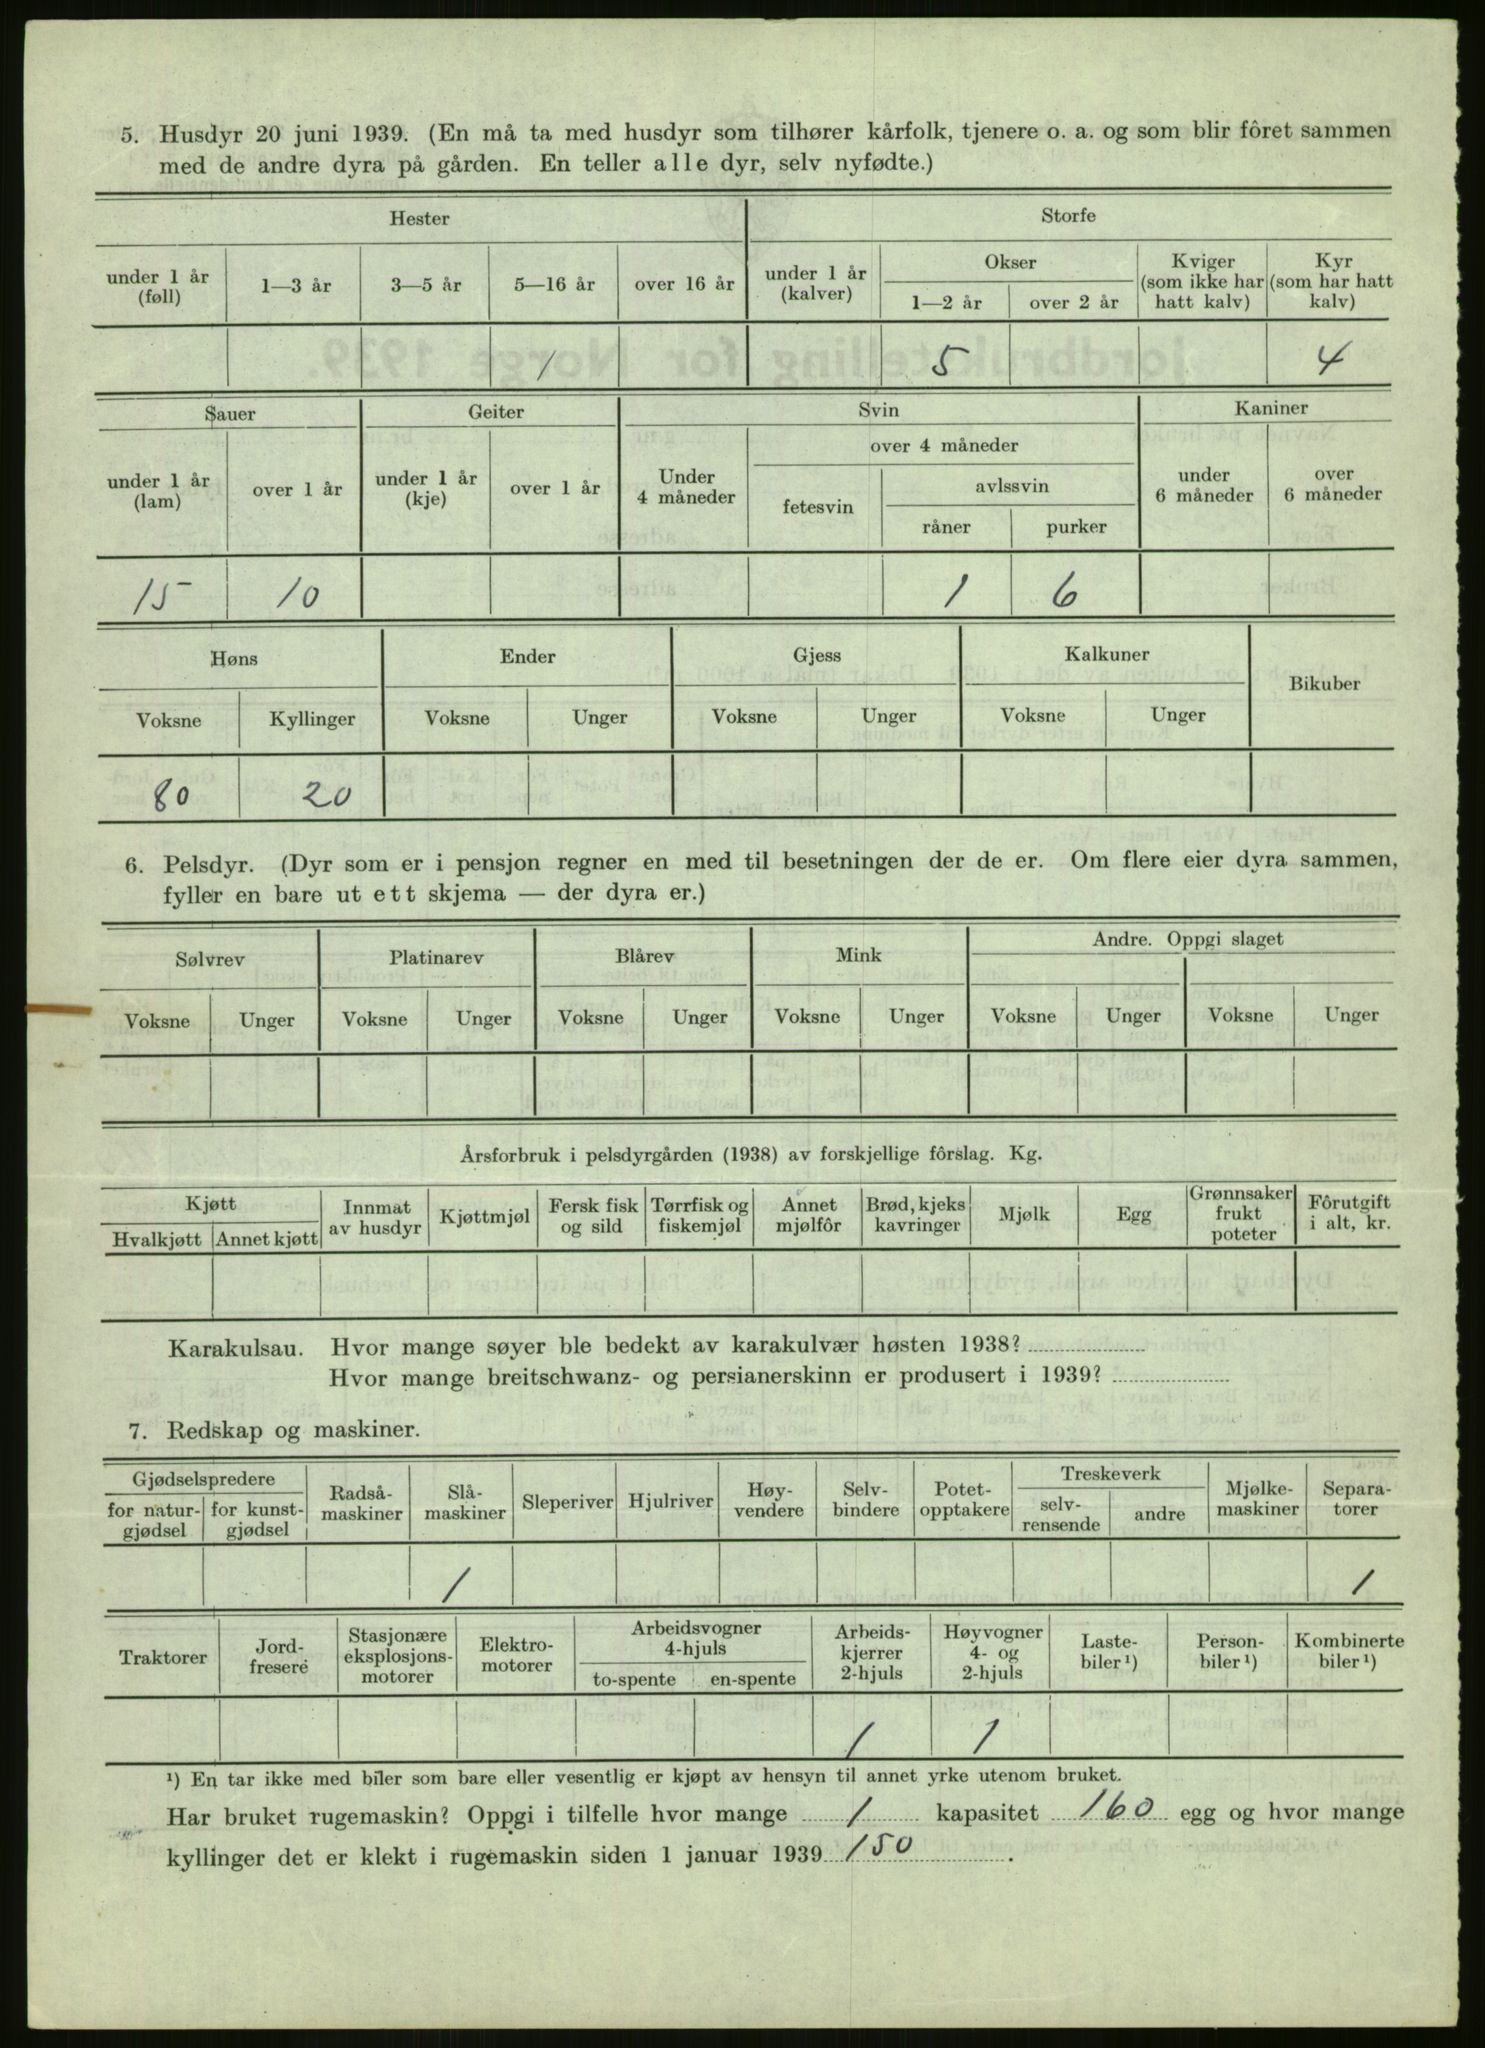 5. Husdyr 20 juni 1939. (En må ta med husdyr som tilhører kårfolk, tjenere o. a. og som blir fôret sammen
med de andre dyra på gården. En teller alle dyr, selv nyfødte.)
Hester Storfe
under 1 år (føll) 1—3 år 3—5 år 5—16 år over 16 år under 1 år (kalver) Okser 1—2 år over 2 år Kviger (som ikke har hatt kalv) Kyr (som har hatt kalv)
1 5 4
Sauer Geiter Svin Kaniner
under 1 år (lam) over 1 år under 1 år (kje) over 1 år Under 4 måneder over 4 måneder fetesvin avlssvin råner purker under 6 måneder over 6 måneder
15 10 1 6
Høns Ender Gjess Kalkuner Bikuber
Voksne Kyllinger Voksne Unger Voksne Unger Voksne Unger
80 20
6. Pelsdyr. (Dyr som er i pensjon regner en med til besetningen der de er. Om flere eier dyra sammen,
fyller en bare ut ett skjema — der dyra er.)
Sølvrev Platinarev Blårev Mink Andre. Oppgi slaget
Voksne Unger Voksne Unger Voksne Unger Voksne Unger Voksne Unger Voksne Unger
Årsforbruk i pelsdyrgården (1938) av forskjellige fôrslag. Kg.
Kjøtt Hvalkjøtt Annet kjøtt Innmat av husdyr Kjøttmjøl Fersk fisk og sild Tørrfisk og fiskemjøl Annet mjølfôr Brød, kjeks kavringer Mjølk Egg Grønnsaker frukt poteter Fôrutgift i alt, kr.
Karakulsau. Hvor mange søyer ble bedekt av karakulvær høsten 1938?
Hvor mange breitschwanz- og persianerskinn er produsert i 1939?
7. Redskap og maskiner.
Gjødselspredere for natur-gjødsel for kunst-gjødsel Radså-maskiner Slå-maskiner Sleperiver Hjulriver Høy-vendere Selv-bindere Potet-opptakere Treskeverk selv-rensende andre Mjølke-maskiner Separa-torer
1 1
Traktorer Jord-fresere Stasjonære eksplosjons-motorer Elektro-motorer Arbeidsvogner 4-hjuls to-spente en-spente Arbeids-kjerrer 2-hjuls Høyvogner 4- og 2-hjuls Laste-biler¹) Person-biler¹) Kombinerte biler¹)
1 1
¹) En tar ikke med biler som bare eller vesentlig er kjøpt av hensyn til annet yrke utenom bruket.
Har bruket rugemaskin? Oppgi i tilfelle hvor mange 1 kapasitet 160 egg og hvor mange
kyllinger det er klekt i rugemaskin siden 1 januar 1939 150.